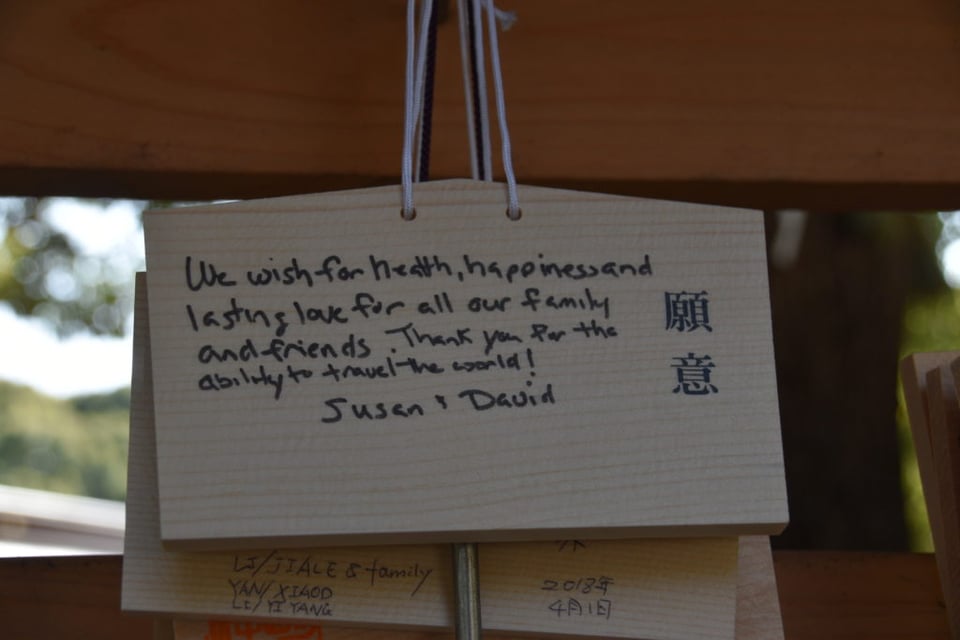 We wish for health, happiness and
lasting love for all our family
and friends. Thank you for the
ability to travel the world!
Susan & David
願意
LI/JIALE & family
YAN/XIAOD
LI/YIYANG
2018年
4月1日